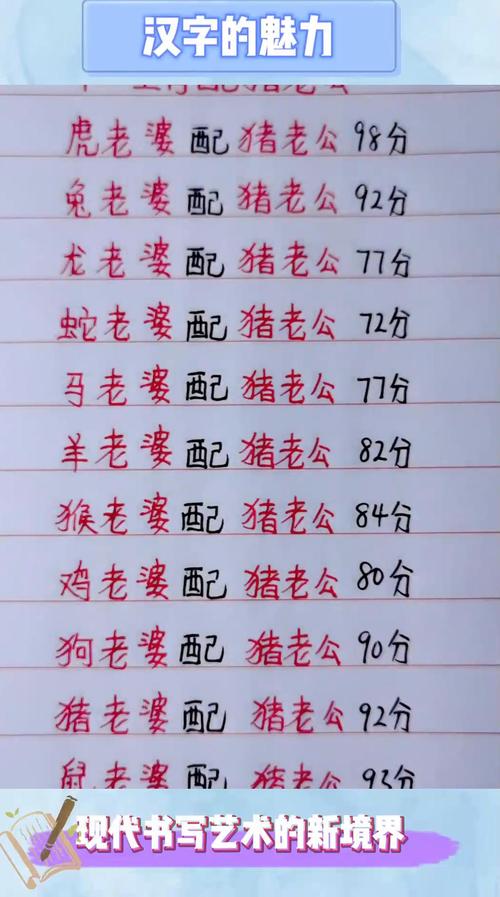 汉字的魅力
虎老婆配猪老公98分
兔老婆配猪老公92分
龙老婆配猪老公77分
蛇老婆配猪老公72分
马老婆配猪老公77分
羊老婆配猪老公82分
猴老婆配猪老公84分
鸡老婆配猪老公80分
狗老婆配猪老公90分
猪老婆配猪老公92分
鼠老婆配猪老公93分
现代书写艺术的新境界